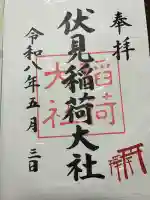 奉拝
伏見稲荷大社
稲荷
大社
令和八年五月三日